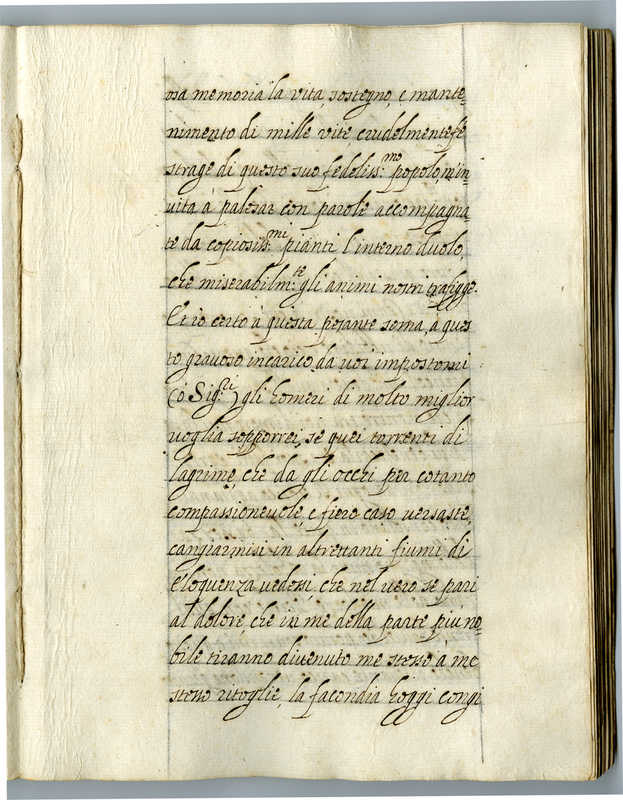 osa memoria la vita, sostegno, e mante=
nimento di mille vite, crudelmente fè
strage di questo suo fedeliss:mo popolo, m'in=
uita à palesar con parole accompagna
te da copiosiss:mi pianti l'interno duolo,
che miserabilm:te gli animi nostri trafigge.
Et io certo à questa pesante soma, à ques
to grauoso incarico da uoi impostomi
(ò Sig:ri) gli homeri di molto miglior
uoglia sopporrei, se quei torrenti di
lagrime, che da gli occhi per cotanto
compassioneuole, e fiero caso versaste,
cangiarmisi in altrettanti fiumi di
eloquenza uedessi, che nel uero se pari
al dolore, che in me della parte più no=
bile tiranno diuenuto me stesso à me
stesso ritoglie, la facondia hoggi congi